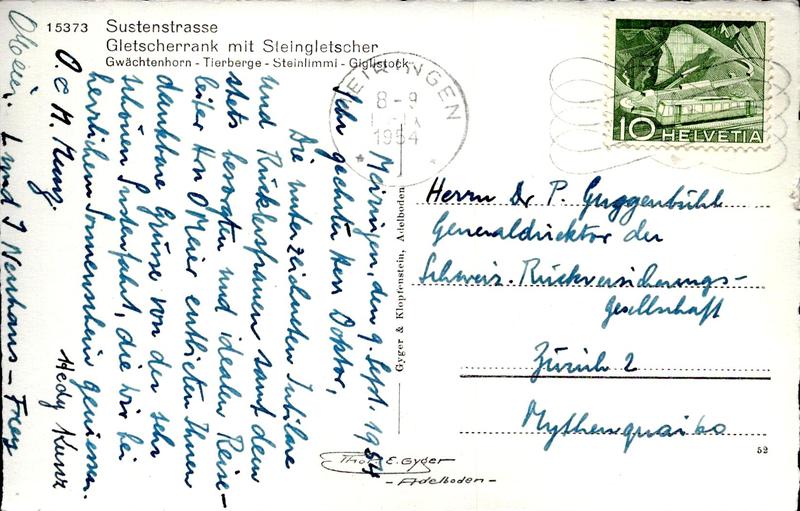 15373 Sustenstrasse
Gletscherrank mit Steingletscher
Gwächtenhorn - Tierberge - Steinlimmi - Giglistock
MEIRINGEN
8-9
1954
10 HELVETIA
Meiringen, den 9. Sept. 1954
Sehr geehrter Herr Doktor,
Die unterzeichneten Jubilare
und Rücklersfrauen samt dem
stets besorgten und idealen Reise-
leiter Hrn O Meier entbieten Ihnen
dankbare Grüsse von der sehr
schönen Sustenfahrt, die wir bei
herrlichem Sonnenschein geniessen.
Hedy Kunz
O. & M. Munz.
L und J Neuhaus-Frey
OMeier.
Gyger & Klopfenstein, Adelboden
Herrn Dr P. Guggenbühl
Generaldirektor der
Schweiz. Rückversicherungs-
gesellschaft
Zürich 2
Mythenquai 60
52
Thor E. Gyger
- Adelboden -